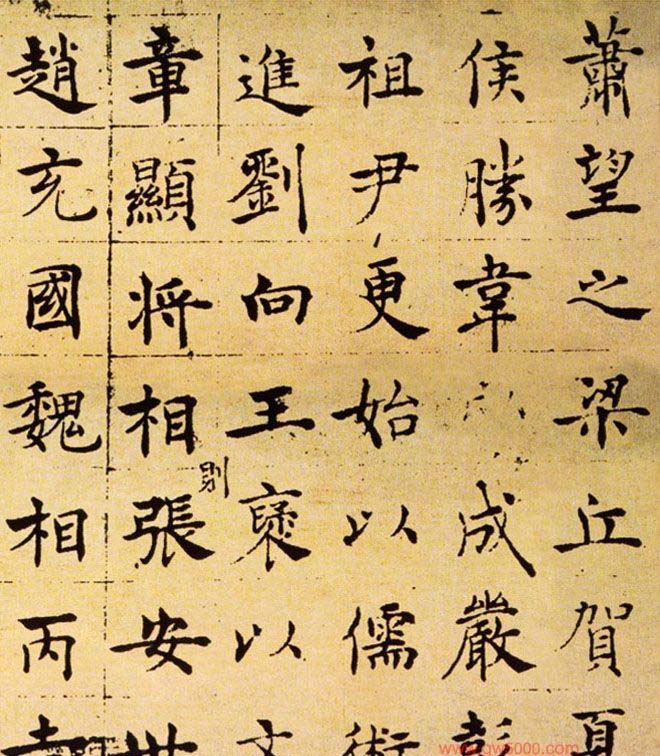 蕭望之梁丘賀夏
侯勝韋成嚴彭
祖尹更始以儒術
進劉向王褒以文
章顯將相則張安世
趙充國魏相丙吉